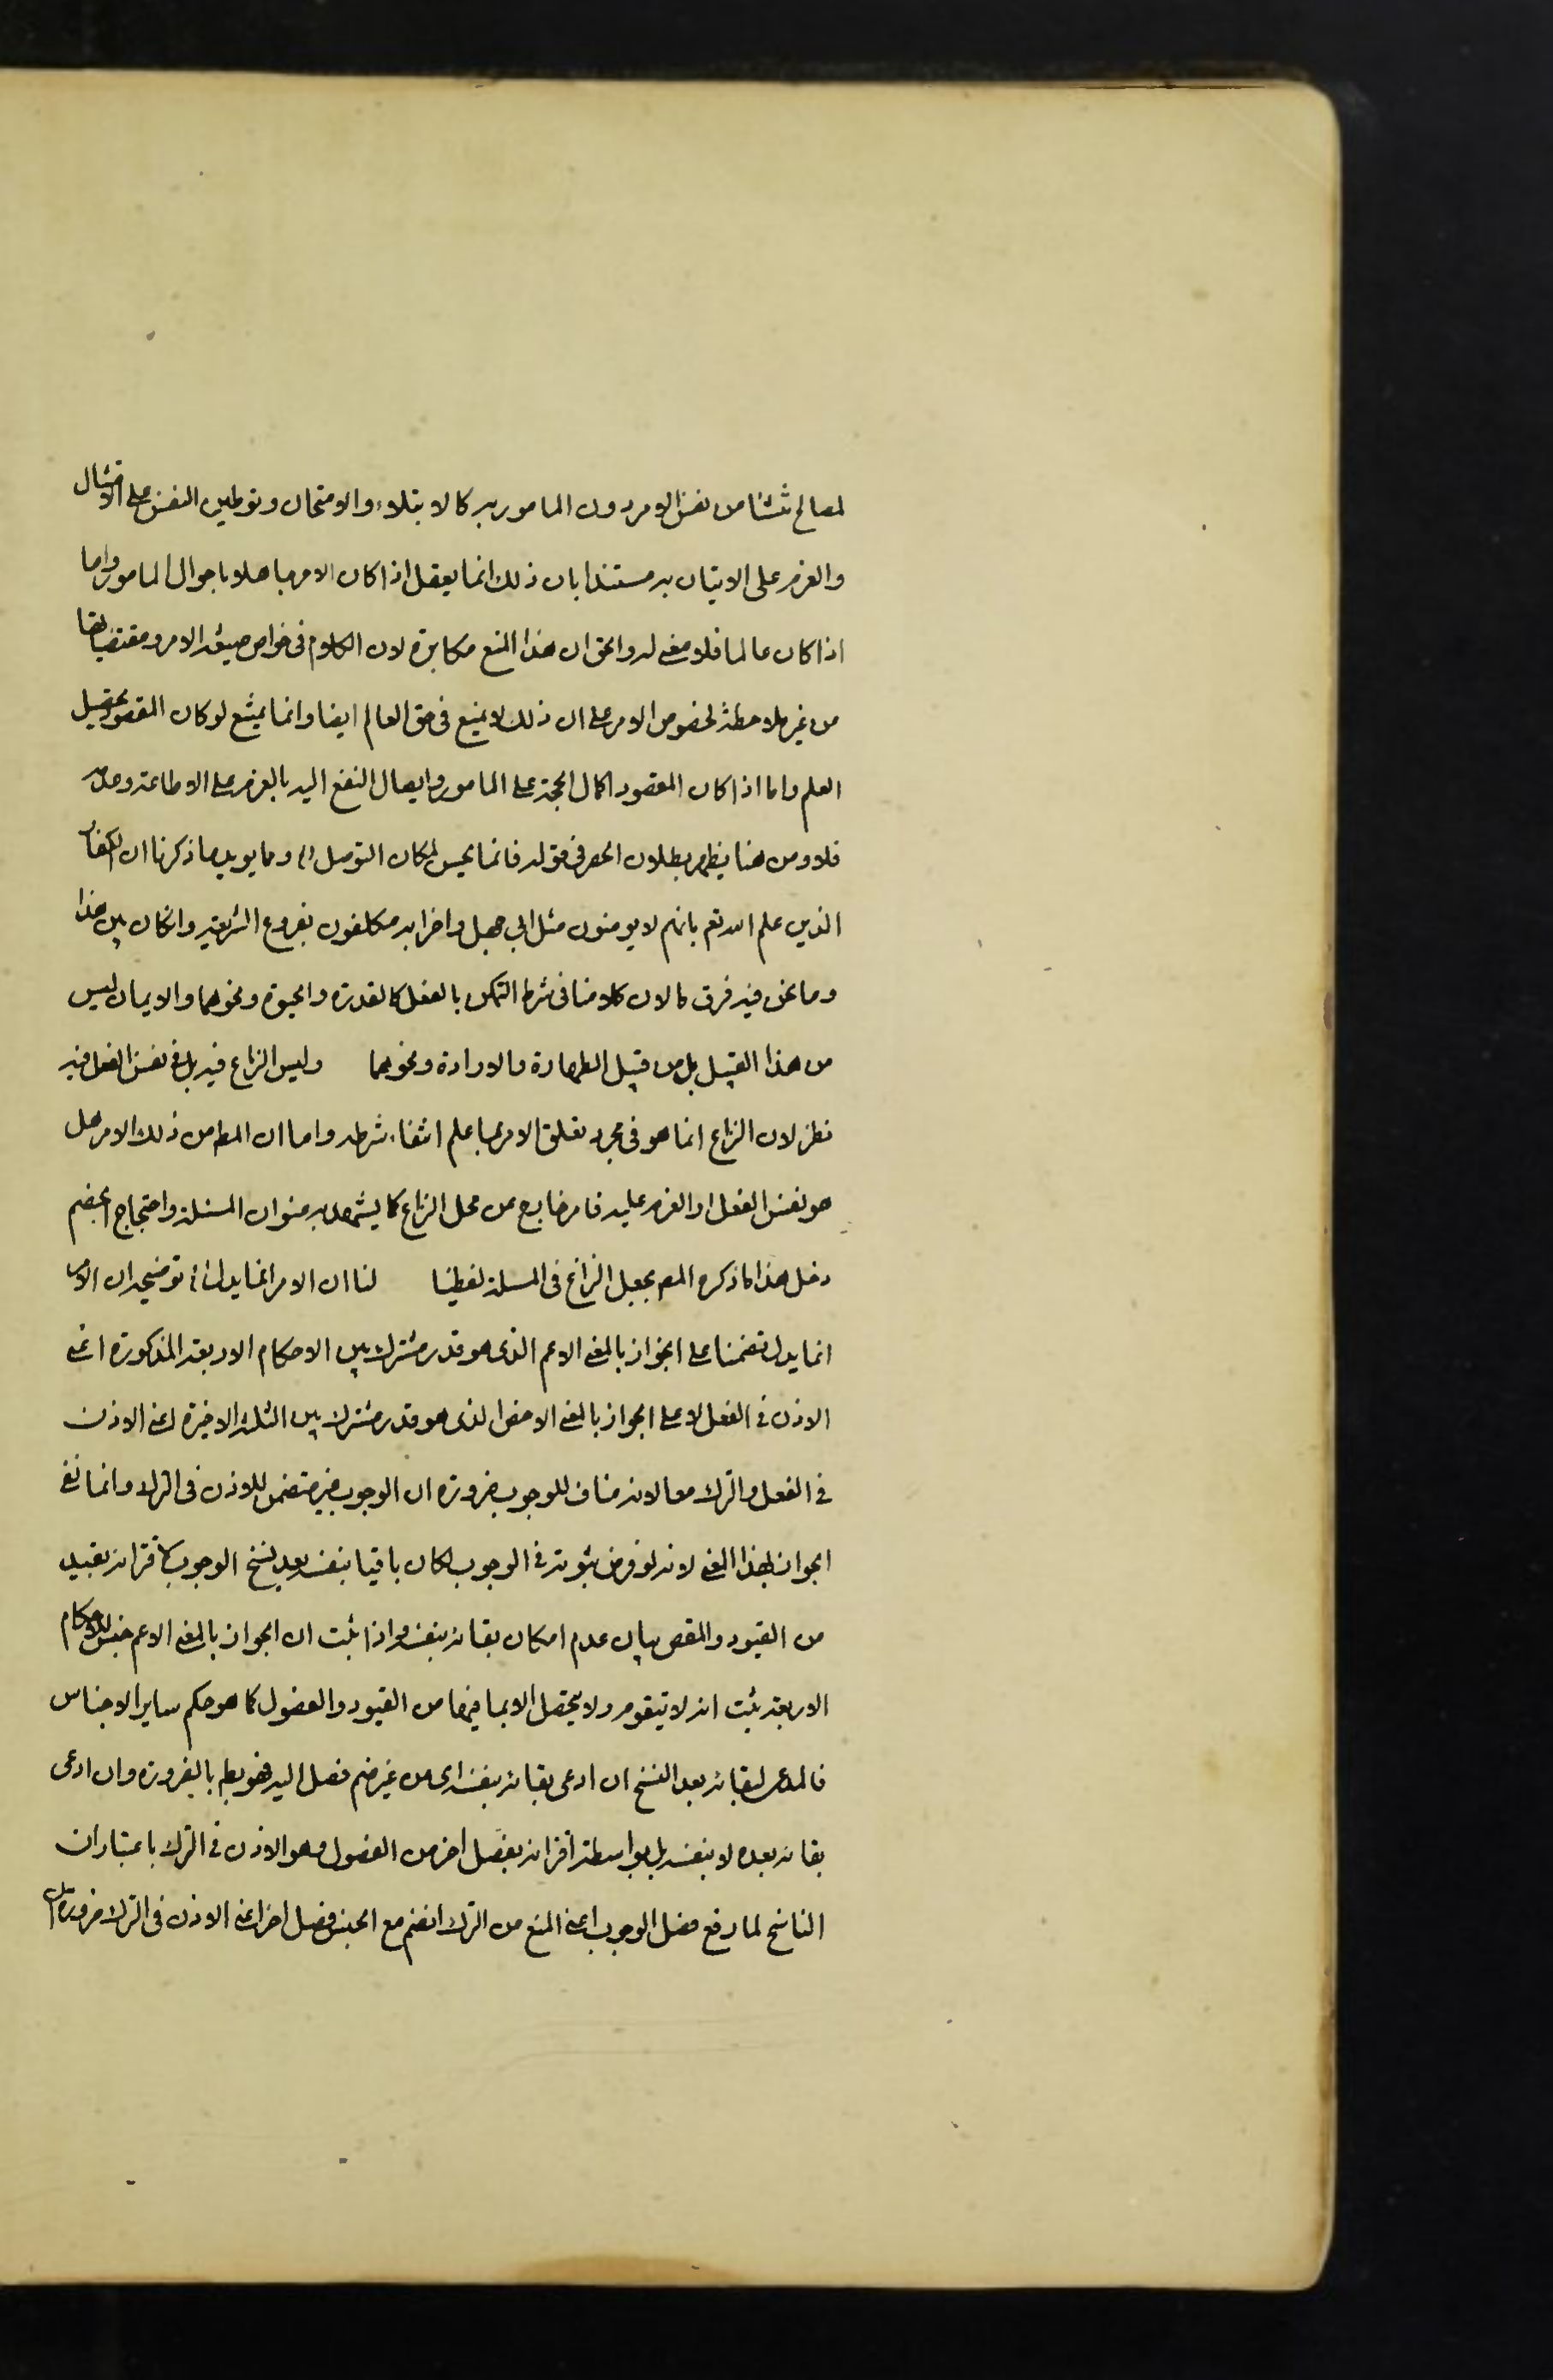 لمصالح تنشأ من نفس الامر دون المامور به كالابتلاء والامتحان وتوطين النفس على الامتثال
والعزم على الاتيان به مستندا بان ذلك انما يعقل اذا كان الامر جاهلا باحوال المامور واما
اذا كان عالما فلا معنى له والحق ان هذا المنع مكابرة لان الكلام فى خواص صيغة الامر ومقتضياتها
من غير ملاحظة لخصوص الامر على ان ذلك لا يمتنع فى حق العالم ايضا وانما يمتنع لو كان المقصود تحصيل
العلم واما اذا كان المقصود اكمال الحجة على المامور وايصال النفع اليه بالعزم على الاطاعة وعدمه
فلا ومن هنا يظهر بطلان الحصر فى قوله فانما يحسن لمكان التوصل الخ ومما يويد ما ذكرنا ان الكفار
الذين علم الله تعم بانهم لا يومنون مثل ابى جهل واضرابه مكلفون بفروع الشريعة وان كان بين هذا
وما نحن فيه فرق ما لان كلامنا فى شرط التمكن بالفعل كالقدرة والحيوة ونحوهما والايمان ليس
من هذا القبيل بل من قبيل الطهارة والارادة ونحوهما وليس النزاع فيه بل فى نفس الفعل فيه
نظر لان النزاع انما هو فى مجرد تعلق الامر بما علم انتفاء شرطه واما ان المط من ذلك الامر هل
هو نفس الفعل او العزم عليه فامر خارج عن محل النزاع كما يشهد به عنوان المسئلة واحتجاج الخصم
دخل هذا ما ذكره المص بجعل النزاع فى المسئلة لفظيا لنا ان الامر انما يدل الخ توضيحه ان الامر
انما يدل تضمنا على الجواز بالمعنى الاعم الذى هو قدر مشترك بين الاحكام الاربعة المذكورة اعنى
الاذن فى الفعل لا على الجواز بالمعنى الاخص الذى هو قدر مشترك بين الثلثة الاخيرة اعنى الاذن
فى الفعل والترك معا لانه مناف للوجوب ضرورة ان الوجوب غير متضمن للاذن فى الترك وانما نفى
الجواز بهذا المعنى لانه لو فرض ثبوته فى الوجوب لكان باقيا بنفسه بعد نسخ الوجوب لاقترانه بقيد
من القيود والمقص بيان عدم امكان بقائه بنفسه واذا ثبت ان الجواز بالمعنى الاعم جنس للاحكام
الاربعة ثبت انه لا يتقوم ولا يتحصل الا بما فيها من القيود والفصول كما هو حكم ساير الاجناس
فالمدعى لبقائه بعد النسخ ان ادعى بقائه بنفسه اى من غير ضم فصل اليه فهو بط بالضرورة وان ادعى
بقائه بعده لا بنفسه بل بواسطة اقترانه بفصل اخر من الفصول وهو الاذن فى الترك باعتبار ان
الناسخ لما رفع فصل الوجوب اعنى المنع من الترك انضم مع الجنس فصل اخر اعنى الاذن فى الترك ضرورة